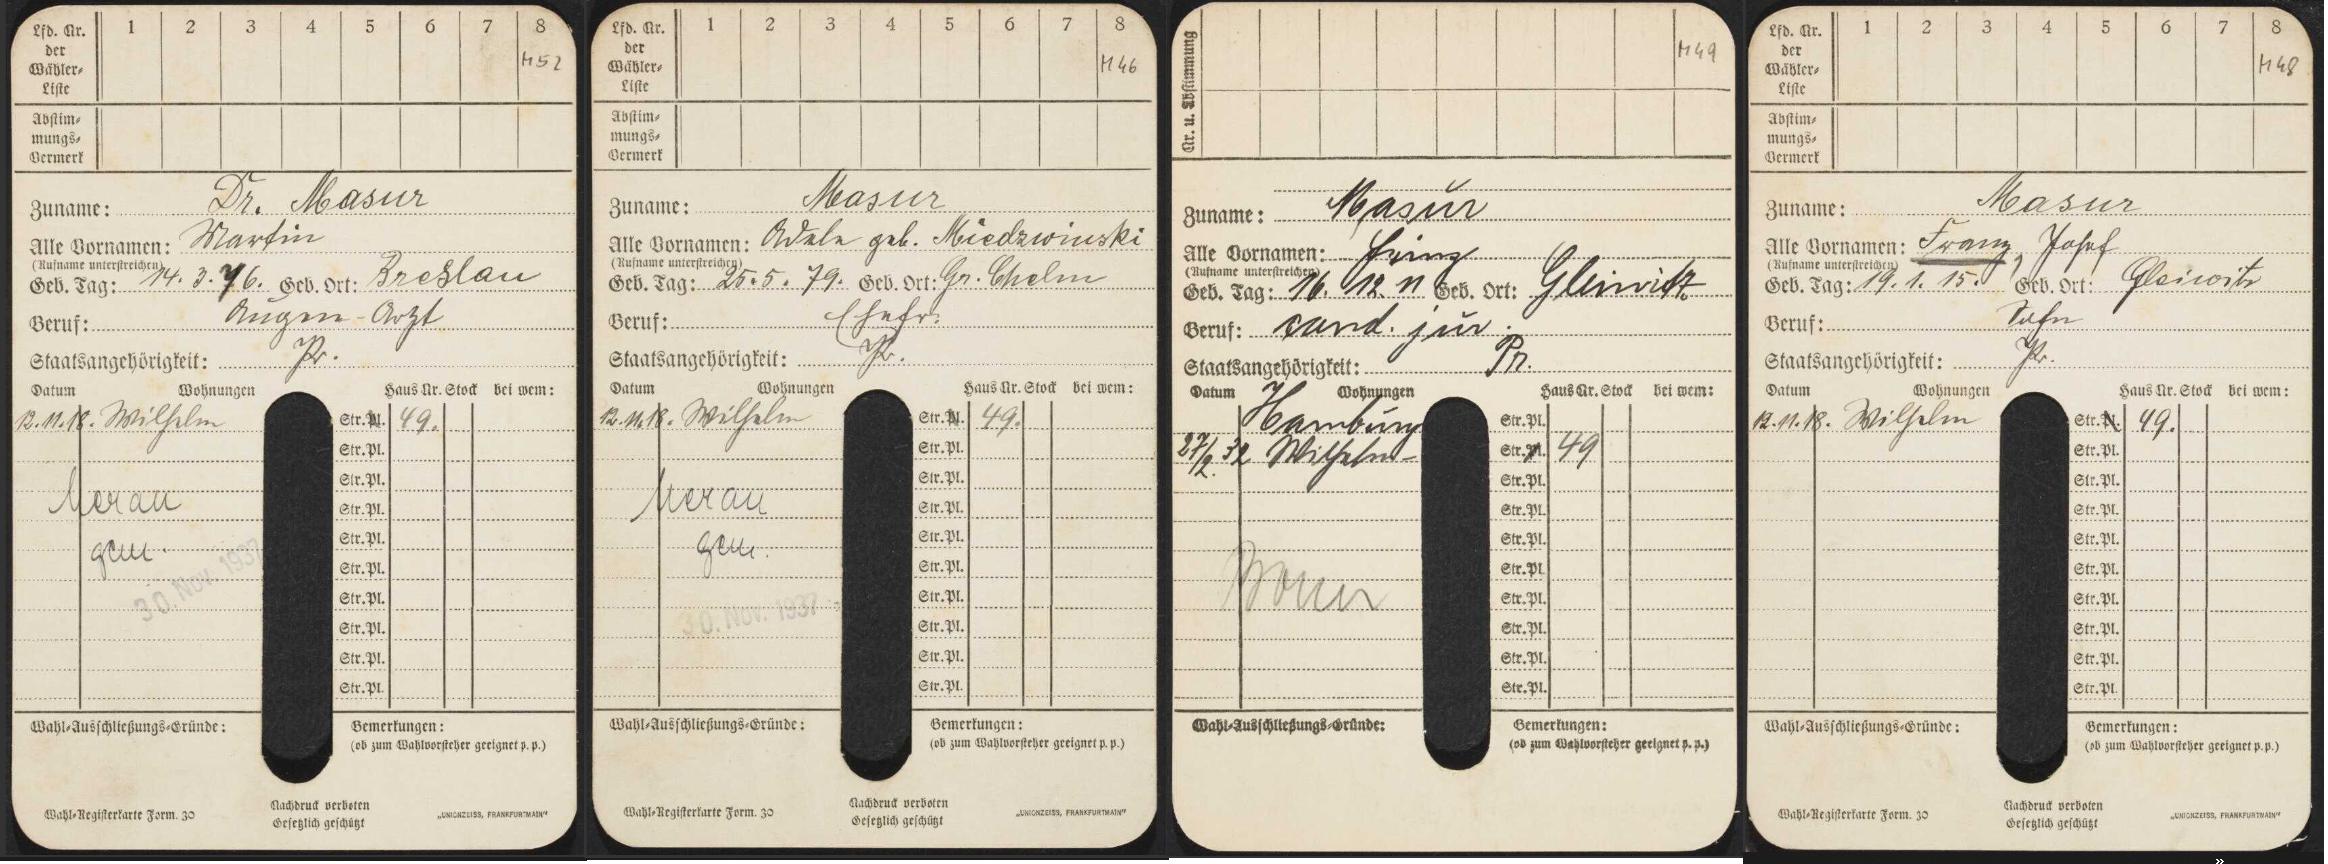 Lfd. Nr.
der
Wähler-
Liste
1 2 3 4 5 6 7 8
M52
Abstim-
mungs-
Vermerk
Zuname: Dr. Masur
Alle Vornamen: Martin
(Rufname unterstreichen)
Geb. Tag: 14. 3. 76. Geb. Ort: Breslau
Beruf: Augen-Arzt
Staatsangehörigkeit: Pr.
Datum Wohnungen Haus Nr. Stock bei wem:
12.11.18. Wilhelm Str.Pl. 49.
Str.Pl.
Str.Pl.
Meran Str.Pl.
gem. Str.Pl.
30. Nov. 1937 Str.Pl.
Str.Pl.
Str.Pl.
Str.Pl.
Str.Pl.
Wahl-Ausschließungs-Gründe: Bemerkungen:
(ob zum Wahlvorsteher geeignet p.p.)
Wahl-Registerkarte Form. 30
Nachdruck verboten
Gesetzlich geschützt
„UNIONZEISS, FRANKFURTMAIN“
Lfd. Nr.
der
Wähler-
Liste
1 2 3 4 5 6 7 8
M46
Abstim-
mungs-
Vermerk
Zuname: Masur
Alle Vornamen: Adele geb. Miedzwinski
(Rufname unterstreichen)
Geb. Tag: 25. 5. 79. Geb. Ort: Gr. Chelm
Beruf: Ehefr.
Staatsangehörigkeit: Pr.
Datum Wohnungen Haus Nr. Stock bei wem:
12.11.18. Wilhelm Str.Pl. 49.
Str.Pl.
Str.Pl.
Meran Str.Pl.
gem. Str.Pl.
Str.Pl.
30. Nov. 1937 Str.Pl.
Str.Pl.
Str.Pl.
Str.Pl.
Wahl-Ausschließungs-Gründe: Bemerkungen:
(ob zum Wahlvorsteher geeignet p.p.)
Wahl-Registerkarte Form. 30
Nachdruck verboten
Gesetzlich geschützt
„UNIONZEISS, FRANKFURTMAIN“
Nr. u. Abstimmung
M49
Zuname: Masur
Alle Vornamen:
(Rufname unterstreichen)
Geb. Tag: 16. 12. 11 Geb. Ort: Gleiwitz
Beruf: cand. jur.
Staatsangehörigkeit: Pr.
Datum Wohnungen Haus Nr. Stock bei wem:
Hamburg Str.Pl.
27/2. 32 Wilhelm- Str.Pl. 49
Str.Pl.
Str.Pl.
Str.Pl.
Str.Pl.
Bonn Str.Pl.
Str.Pl.
Str.Pl.
Str.Pl.
Wahl-Ausschließungs-Gründe: Bemerkungen:
(ob zum Wahlvorsteher geeignet p.p.)
Lfd. Nr.
der
Wähler-
Liste
1 2 3 4 5 6 7 8
M48
Abstim-
mungs-
Vermerk
Zuname: Masur
Alle Vornamen: Franz, Josef
(Rufname unterstreichen)
Geb. Tag: 19. 1. 15. Geb. Ort: Gleiwitz
Beruf: Sohn
Staatsangehörigkeit: Pr.
Datum Wohnungen Haus Nr. Stock bei wem:
12.11.18. Wilhelm Str.Pl. 49.
Str.Pl.
Str.Pl.
Str.Pl.
Str.Pl.
Str.Pl.
Str.Pl.
Str.Pl.
Str.Pl.
Str.Pl.
Wahl-Ausschließungs-Gründe: Bemerkungen:
(ob zum Wahlvorsteher geeignet p.p.)
Wahl-Registerkarte Form. 30
Nachdruck verboten
Gesetzlich geschützt
„UNIONZEISS, FRANKFURTMAIN“
»